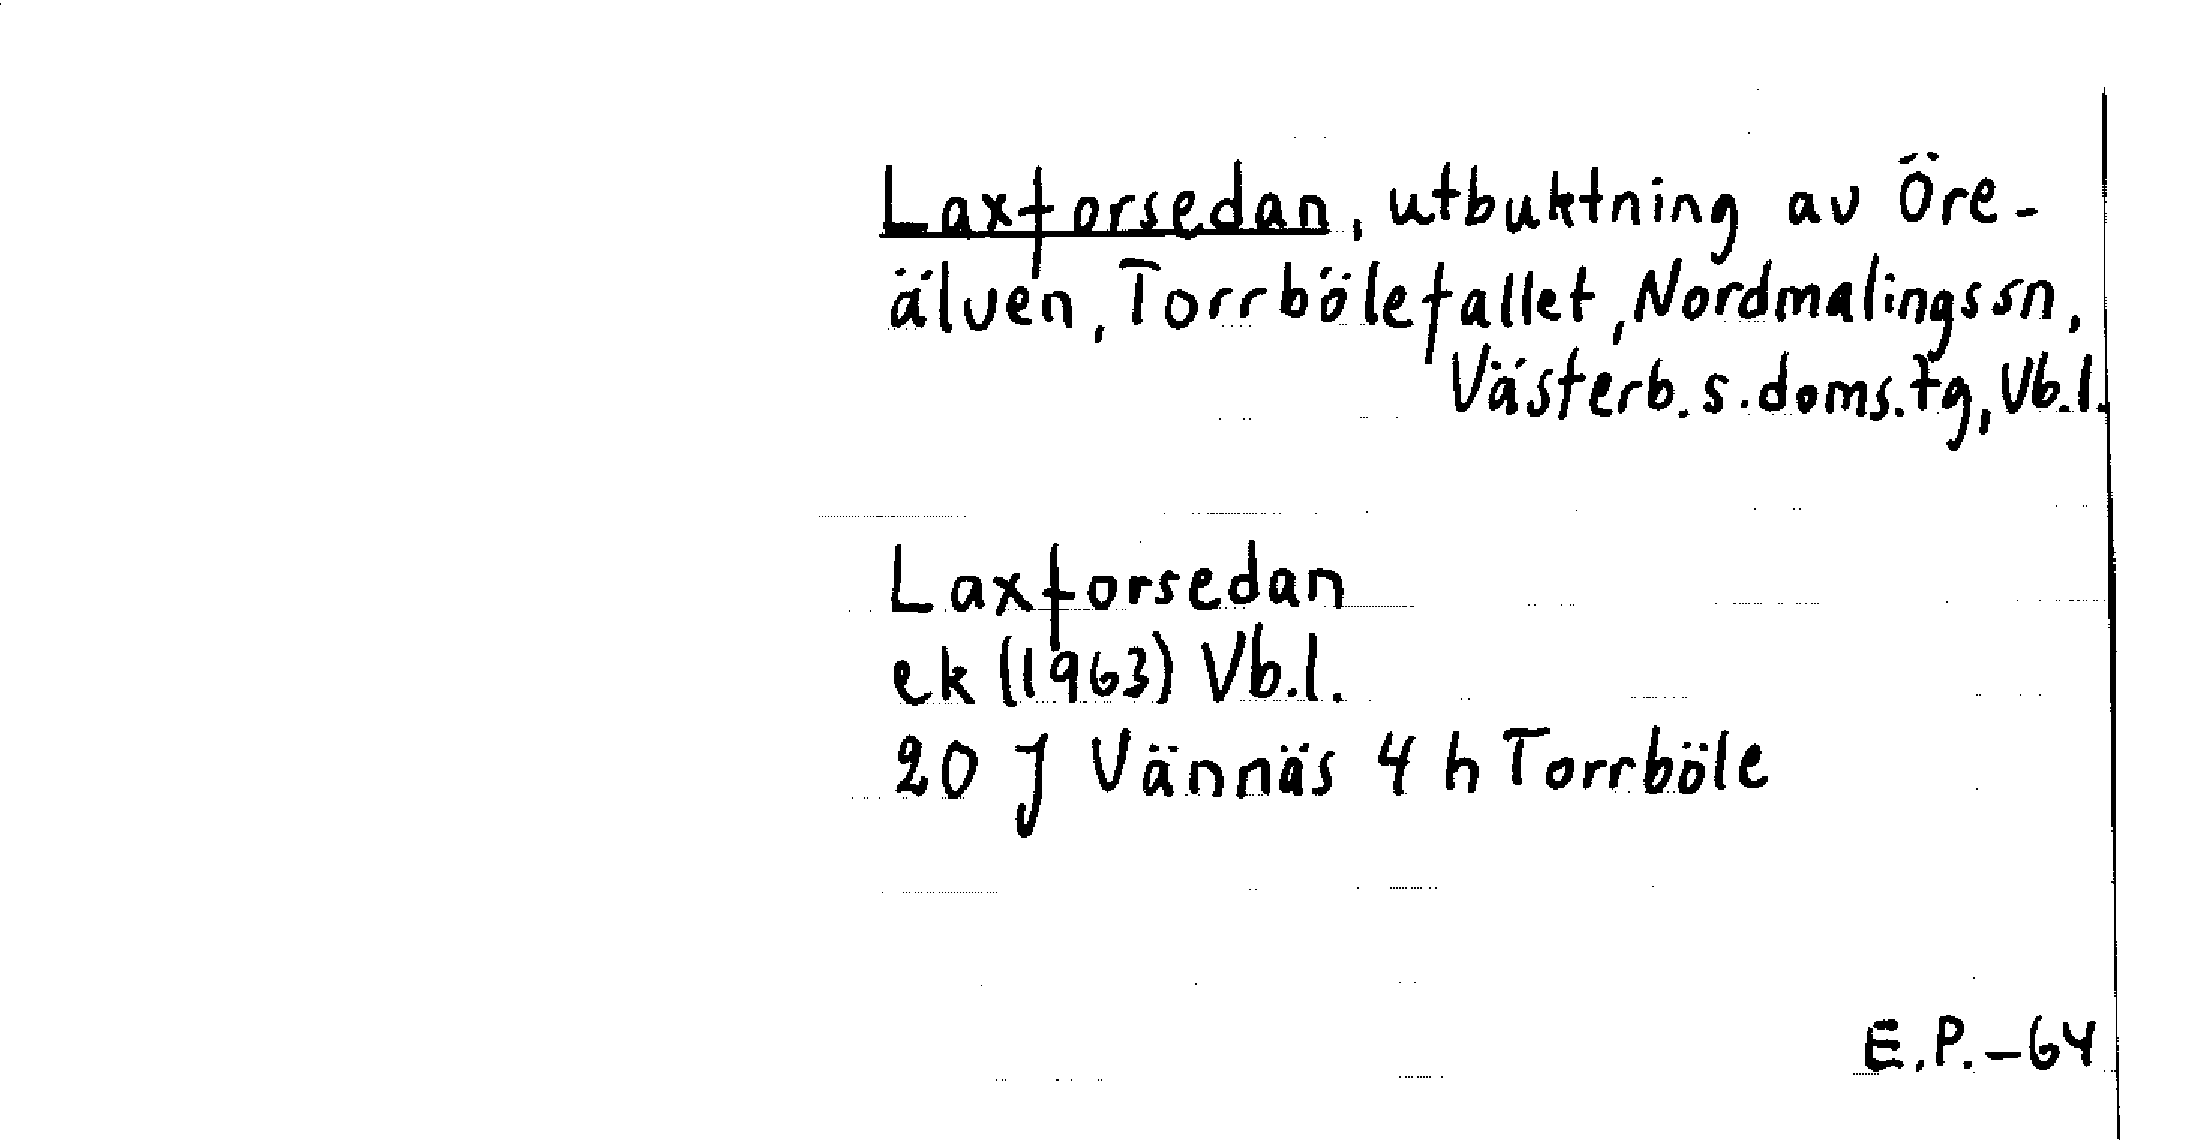 Laxforsedan, utbuktning av Öre-
älven, Torrbölefallet, Nordmalings sn,
Västerb. s. doms. tg, Vb.l.
Laxforsedan
ek (1963) Vb.l.
20 J Vännäs 4 h Torrböle
E.P.–64